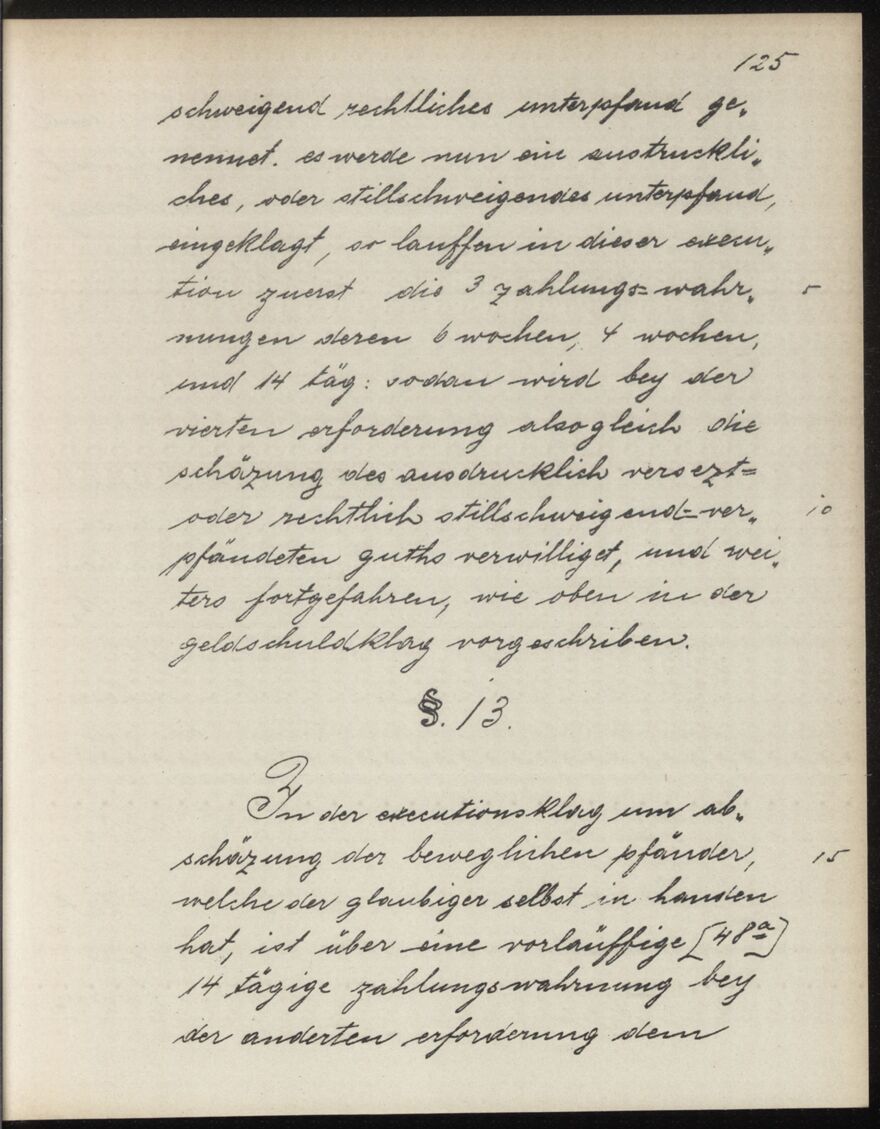 125
schweigend rechtliches unterpfand ge„
nennet. es werde nun ein austruckli„
ches, oder stillschweigendes unterpfand,
eingeklagt, so lauffen in dieser execu„
tion zuerst die 3 zahlungs=wahr„ 5
nungen deren 6 wochen, 4 wochen,
und 14 täg: sodan wird bey der
vierten erforderung alsogleich die
schäzung des ausdrucklich versezt=
oder rechtlich stillschweigend=ver„ 10
pfändeten guths verwilliget, und wei„
ters fortgefahren, wie oben in der
geldschuldklag vorgeschriben.
§. 13.
In der executionsklag um ab„
schäzung der beweglichen pfänder, 15
welche der glaubiger selbst in handen
hat, ist über eine vorläuffige [48a]
14 tägige zahlungswahrnung bey
der anderten erforderung dem